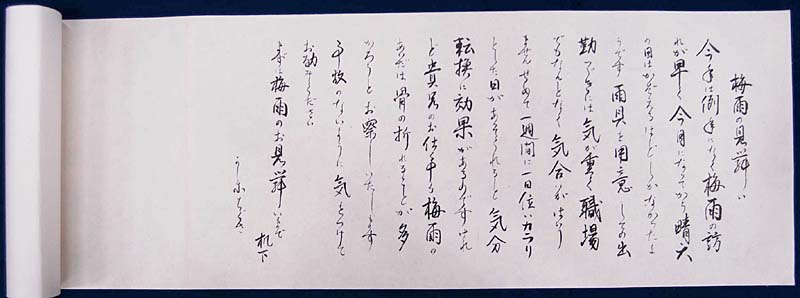 梅雨の見舞い
今年は例年になく梅雨の訪
れが早く今月になってから晴天
の日はかぞえるほどしかなかったよ
うです 雨具を用意しての出
勤でまたは気が重く職場
でもなんとなく気合がはいり
ません せめて一週間に一日位いカラリ
とした日があってくれると気分
転換に効果があるのですけれ
ど 貴兄のお仕事も梅雨の
あいだは骨の折れることが多
かろうとお察しいたします
事故のないように気をつけて
お励みください
まずは梅雨のお見舞いまで
机下